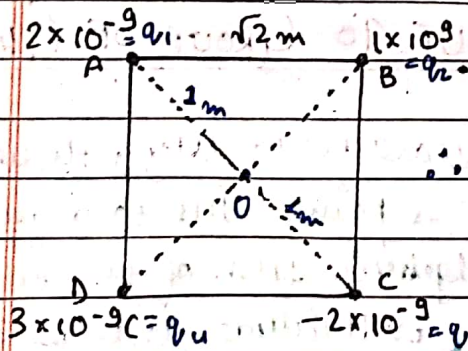 2×10⁻⁹=q₁ √2 m 1×10⁹
A B =q₂
1m
O 1m
D C
3×10⁻⁹C=q₄ -2×10⁻⁹=q